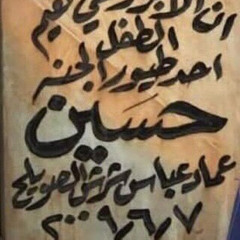 ان الابرار لفي نعيم
الطفل
احد طيور الجنه
حسين
عماد عباس شرش الصويلح
٢٠٠٩/٦/٧